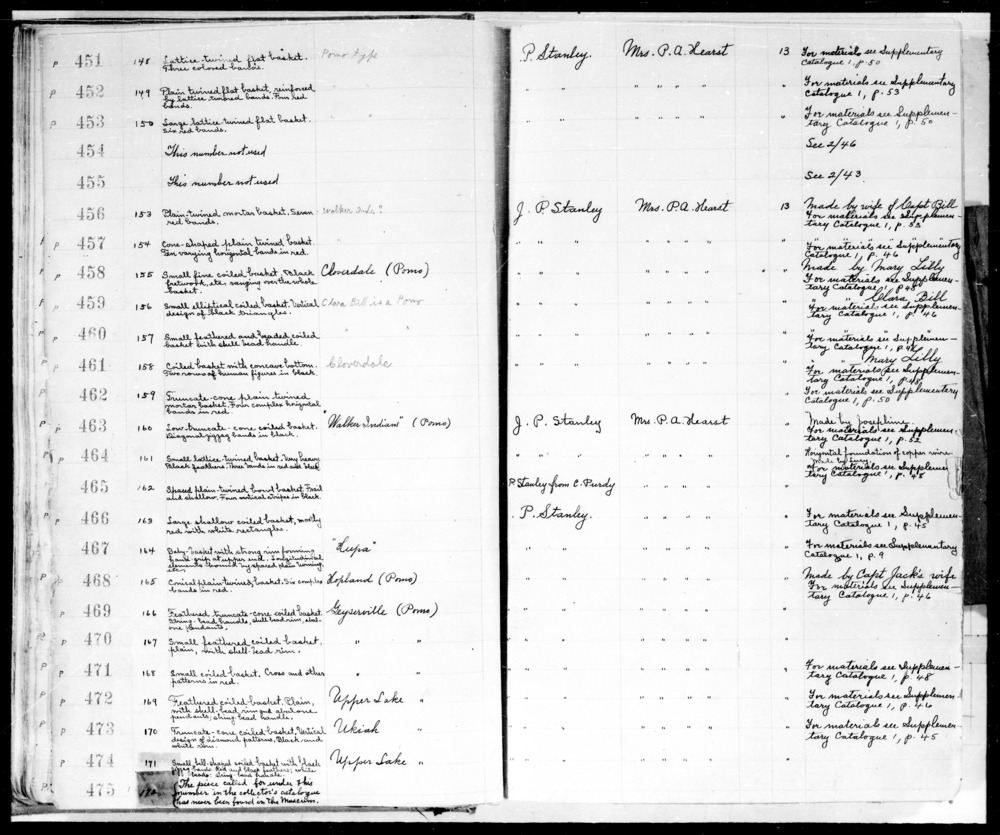 P 451 148 Lattice-twined flat basket. Pomo type P. Stanley. Mrs. P. A. Hearst 13 For materials see Supplementary
Three colored bands. Catalogue 1, p. 50
P 452 149 Plain twined flat basket, reinforced " " " " " " " For materials see Supplementary
by lattice twined bands. Four red Catalogue 1, p. 53
bands.
P 453 150 Large lattice-twined flat basket. " " " " " " " For materials see Supplemen-
Six red bands. tary Catalogue 1, p. 50
454 This number not used See 2/46
455 This number not used See 2/43
456 153 Plain-twined mortar basket. Seven Walker Inds.? J. P. Stanley Mrs. P. A. Hearst 13 Made by wife of Capt Bill
red bands. For materials see Supplemen-
tary Catalogue 1, p. 53
P 457 154 Cone-shaped plain twined basket. " " " " " " " " " For materials see Supplementary
Ten varying horizontal bands in red. Catalogue 1, p. 46
P 458 155 Small fine coiled basket. Black Cloverdale (Pomo) " " " " " " " Made by Mary Lilly
fretwork, etc, ranging over the whole For materials see Supplemen-
basket. tary Catalogue 1, p. 48
P 459 156 Small elliptical coiled basket. Vertical Clara Bill is a Pomo " " " " " " " " " Clara Bill
design of black triangles. For materials see Supplemen-
tary Catalogue 1, p. 46
P 460 157 Small feathered and beaded coiled " " " " " " " " " For materials see Supplemen-
basket with shell bead handle. tary Catalogue 1, p. 46
P 461 158 Coiled basket with concave bottom. Cloverdale " " " " " " " " Mary Lilly
Two rows of human figures in black. For materials see Supplemen-
tary Catalogue 1, p. 48
P 462 159 Truncate-cone plain twined For materials see Supplementary
mortar basket. Four complex horizontal Catalogue 1, p. 50
bands in red
P 463 160 Low truncate-cone coiled basket. "Walker Indians" (Pomo) J. P. Stanley Mrs. P. A. Hearst " Made by Josephine.
Diagonal zigzag bands in black. For materials see Supplemen-
tary Catalogue 1, p. 52
P 464 161 Small lattice twined basket. Very heavy. " " " " " " " Horizontal foundation of copper wire.
Black feathers. Three bands in red and black Made by Lucy.
For materials see Supplemen-
tary Catalogue 1, p. 48
465 162 Spaced plain-twined bound basket. Frail P. Stanley from C. Purdy " " " " "
and shallow. Four vertical stripes in black.
P 466 163 Large shallow coiled basket, mostly P. Stanley. " " " " " For materials see Supplemen-
red with white rectangles. tary Catalogue 1, p. 45
467 164 Baby-basket with strong rim forming "Hupa" " " " " " " " For materials see Supplementary
hand grip at upper end. Longitudinal Catalogue 1, p. 9
elements bound by spaced plain twining,
etc.
P 468 165 Conical plain twined basket. Six complex Hopland (Pomo) " " " " " " " Made by Capt Jack's wife
bands in red. For materials see Supplemen-
tary Catalogue 1, p. 46
P 469 166 Feathered, truncate-cone coiled basket. Geyserville (Pomo) " " " " " " "
String-bead handle, shell bead rim, abal-
one pendants.
P 470 167 Small feathered coiled basket, " " " " " " " " "
plain, with shell-bead rim.
P 471 168 Small coiled basket. Cross and other " " " " " " " " " For materials see Supplemen-
patterns in red. tary Catalogue 1, p. 48
P 472 169 Feathered coiled basket. Plain, Upper Lake " " " " " " " " For materials see Supplemen-
with shell-bead rim and abalone tary Catalogue 1, p. 46
pendants; string bead handle.
P 473 170 Truncate-cone coiled basket. Vertical Ukiah " " " " " " " " For materials see Supplemen-
design of diamond patterns. Black and tary Catalogue 1, p. 45
white rim.
P 474 171 Small bell-shaped coiled basket with black Upper Lake " " " " " " " "
zigzag bands. Red and black feathers; white
beads; string-bead handle.
P 475 172 (The piece called for under this
number in the collector's catalogue
has never been found in the Museum.